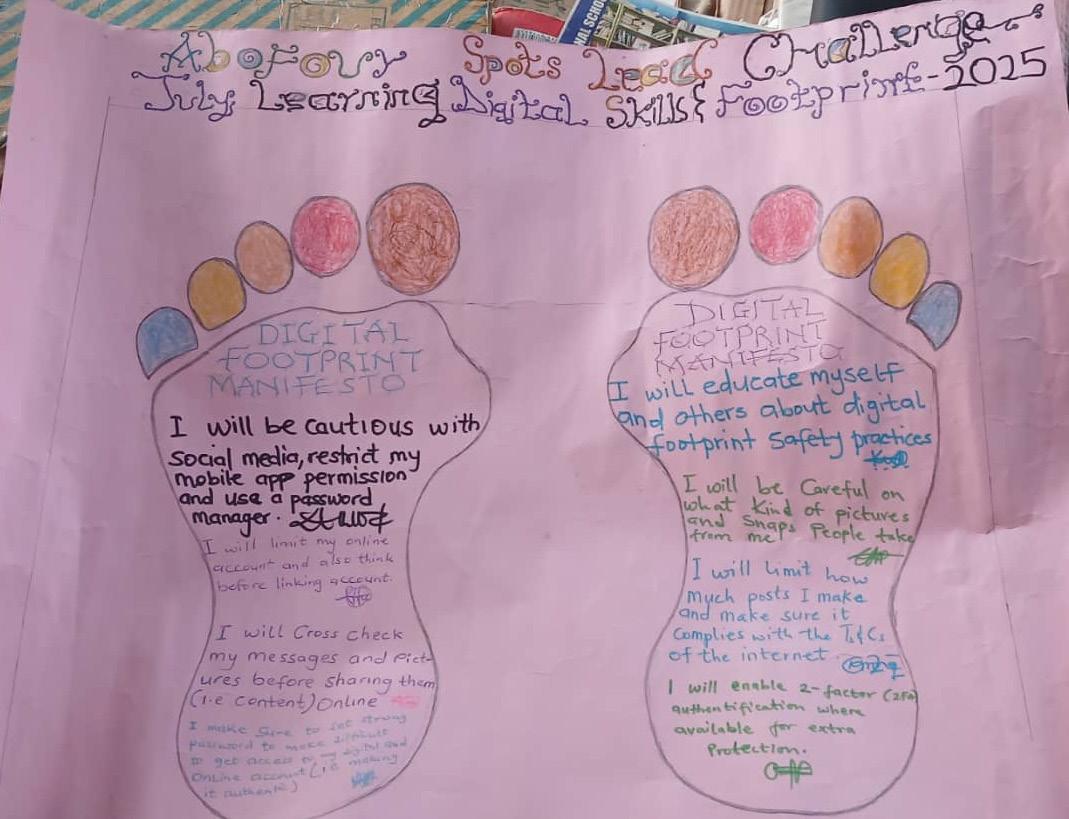 NAL SCHO
Abofour Spots Lead Challenge
July, Learning Digital Skills & Footprint-2025
DIGITAL
FOOTPRINT
MANIFESTO
I will be cautious with
social media, restrict my
mobile app permission
and use a password
manager.
I will limit my online
account and also think
before linking account.
I will Cross check
my messages and Pict-
ures before sharing them
(i.e content) Online
I make Sure to set strong
password to make difficult
to get access to my digital and
Online account (i.e making
it authentic)
DIGITAL
FOOTPRINT
MANIFESTO
I will educate myself
and others about digital
footprint safety practices
I will be Careful on
what Kind of pictures
and Snaps People take
from me
I will limit how
much posts I make
and make sure it
complies with the T&Cs
of the internet.
I will enable 2-factor (2FA)
authentification where
available for extra
Protection.